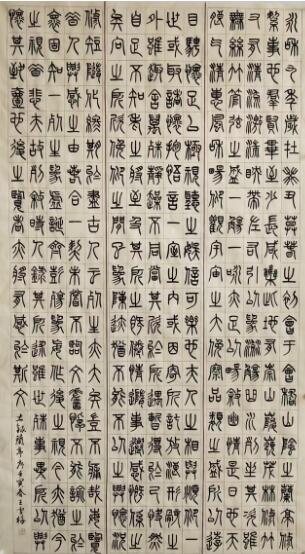 永和九年歲在癸丑暮春之初會于會稽山陰之蘭亭脩
禊事也羣賢畢至少長咸集此地有崇山峻領茂林脩竹
又有清流激湍暎帶左右引以爲流觴曲水列坐其次雖
無絲竹管弦之盛一觴一詠亦足以暢敘幽情是日也天
朗氣清惠風和暢仰觀宇宙之大俯察品類之盛所以遊
目騁懷足以極視聽之娛信可樂也夫人之相與俯仰一
世或取諸懷抱悟言一室之內或因寄所託放浪形骸之
外雖趣舍萬殊靜躁不同當其欣於所遇暫得於己快然
自足不知老之將至及其所之既惓情隨事遷感慨係之
矣向之所欣俛仰之間以爲陳迹猶不能不以之興懷況
脩短隨化終期於盡古人云死生亦大矣豈不痛哉每覽
昔人興感之由若合一契未嘗不臨文嗟悼不能喻之於
懷固知一死生爲虛誕齊彭殤爲妄作後之視今亦猶今
之視昔悲夫故列敘時人錄其所述雖世殊事異所以興
懷其致一也後之覽者亦將有感於斯文
錄蘭亭序壬寅春王